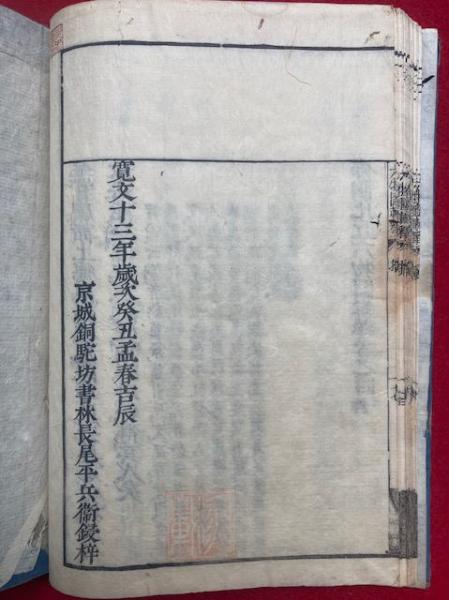 寛文十三年歳次癸丑孟春吉辰
京城銅駝坊書林長尾平兵衞鋟梓